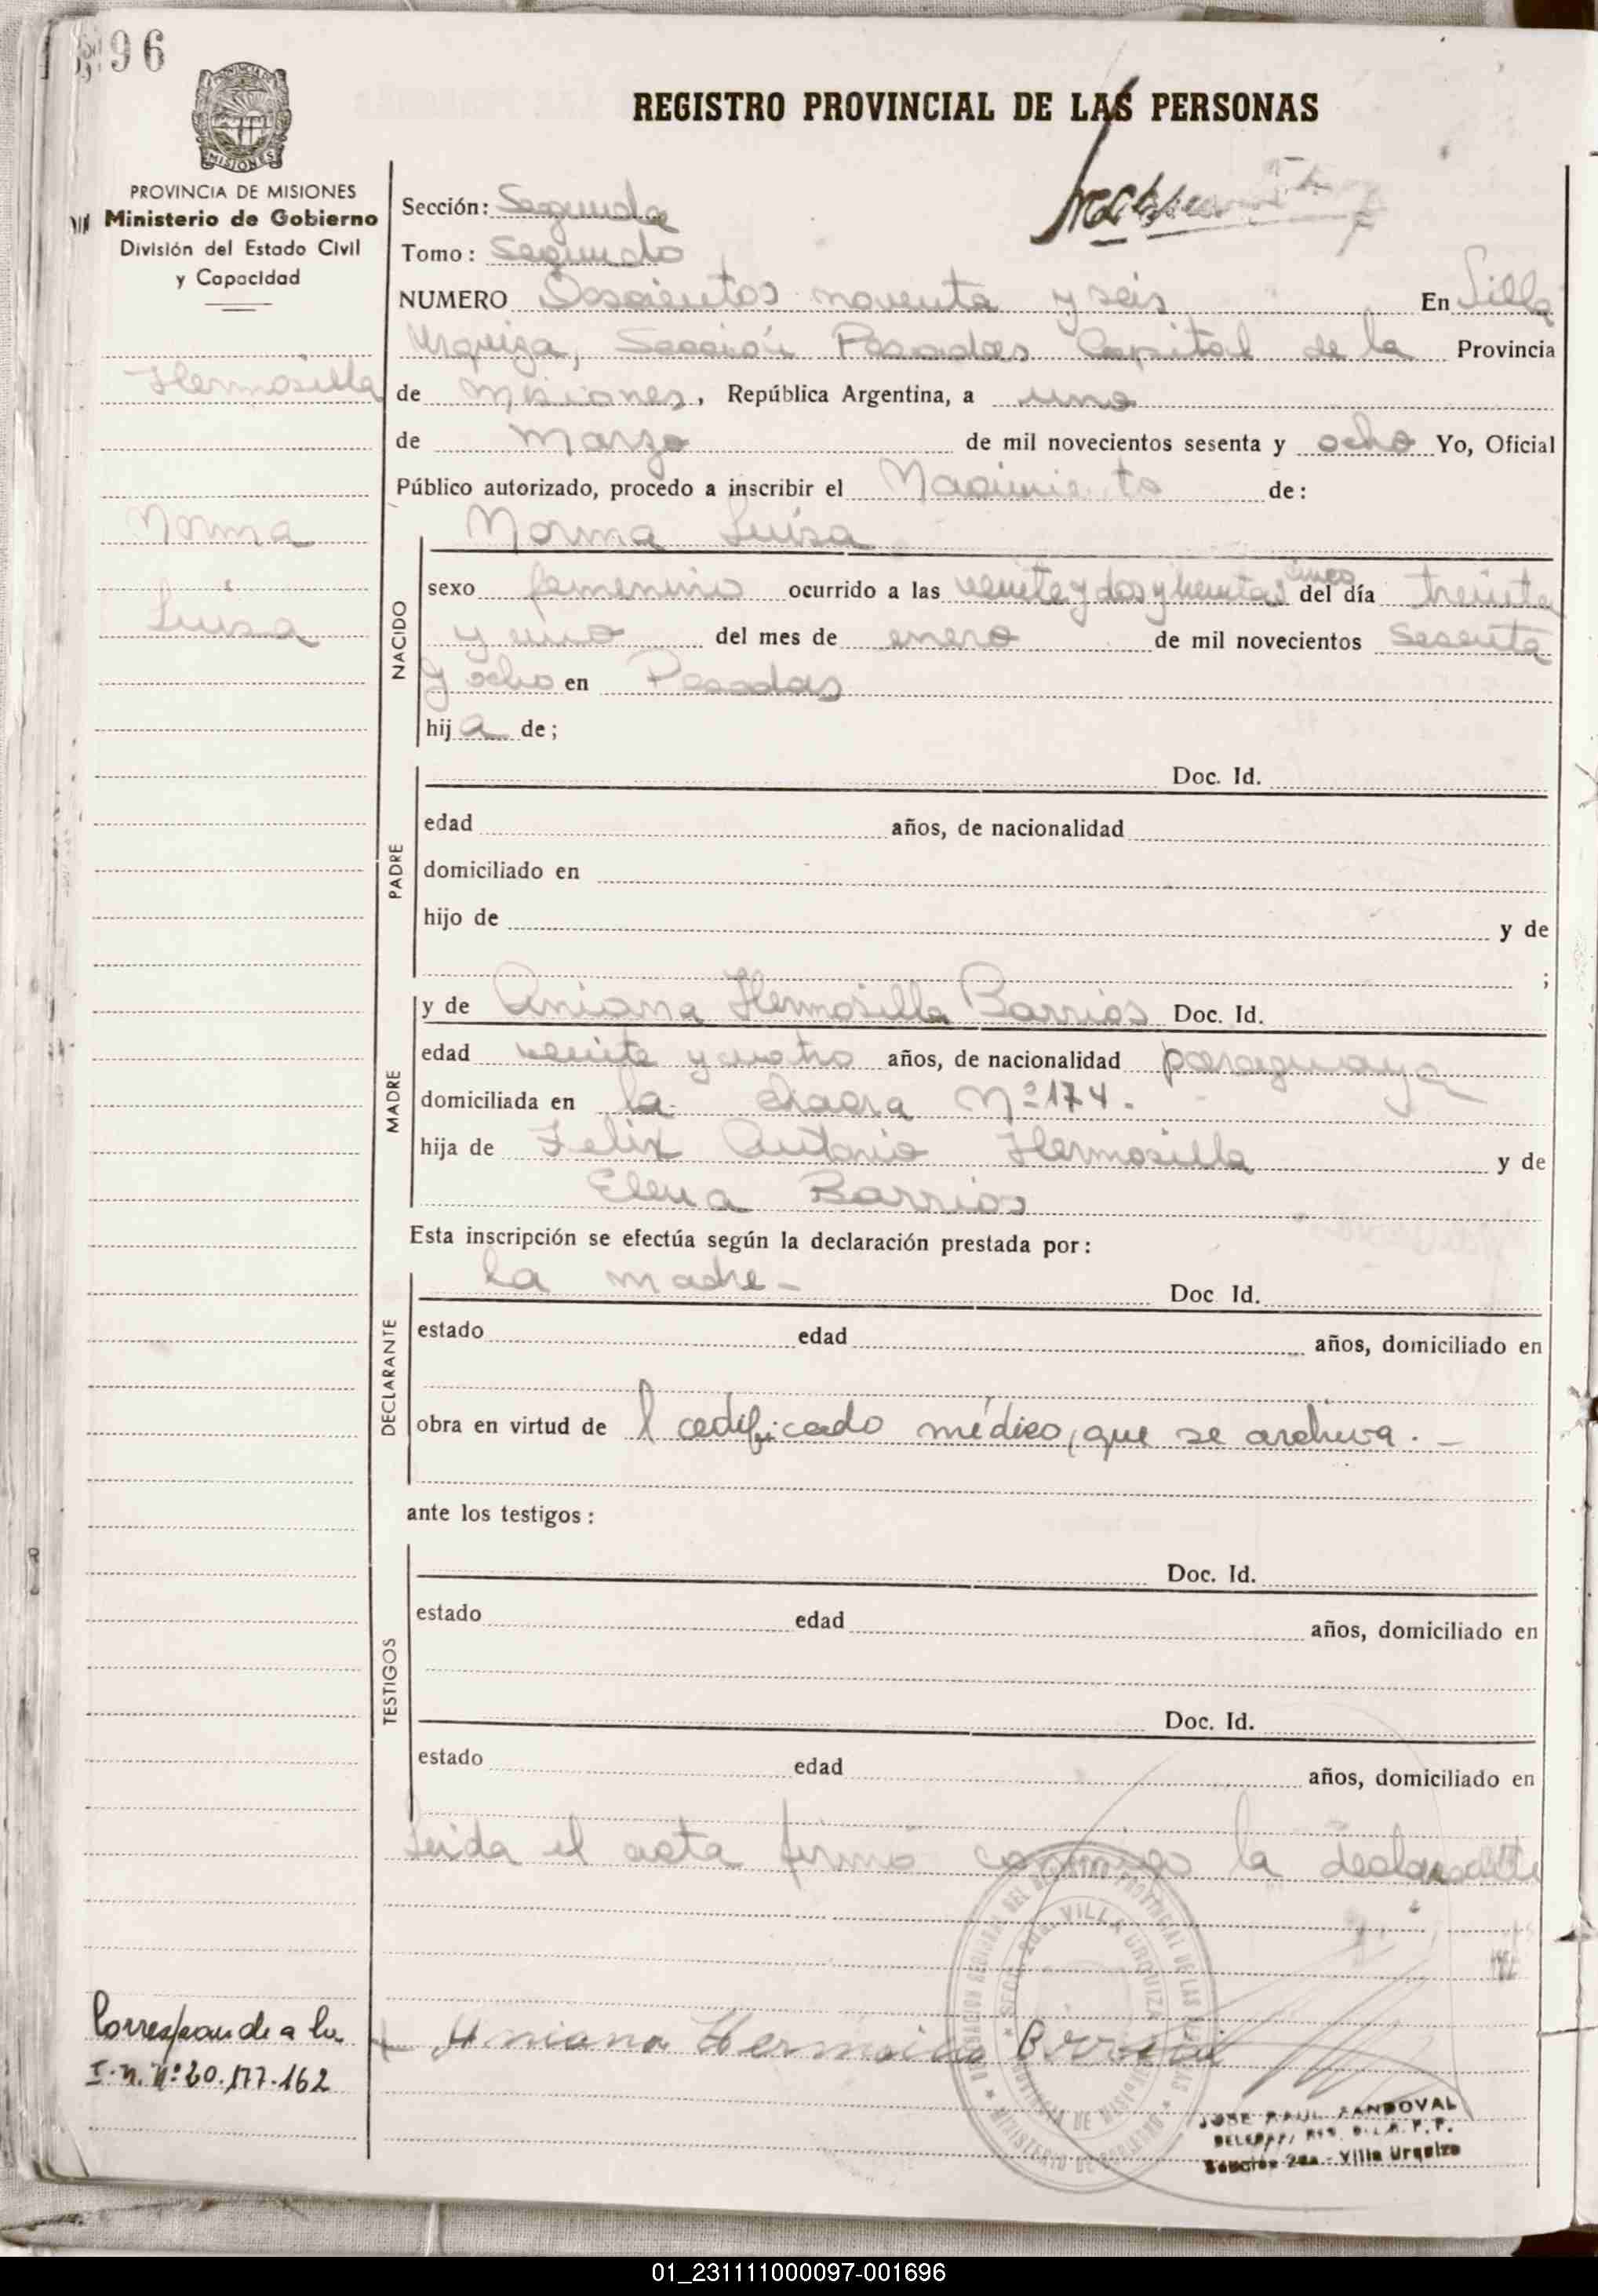 96
REGISTRO PROVINCIAL DE LAS PERSONAS
MISIONES
PROVINCIA DE MISIONES
Ministerio de Gobierno
División del Estado Civil
y Capacidad
Hermosilla
Norma
Luisa
Sección: Segunda
Tomo: Segundo
NUMERO Doscientos noventa y seis En Villa
Urquiza, Sección Posadas Capital de la Provincia
de Misiones, República Argentina, a uno
de marzo de mil novecientos sesenta y ocho Yo, Oficial
Público autorizado, procedo a inscribir el Nacimiento de:
Norma Luisa
NACIDO
sexo femenino ocurrido a las veinte y dos y treinta cinco del día treinta
y uno del mes de enero de mil novecientos sesenta
y ocho en Posadas
hija de;
PADRE
Doc. Id.
edad años, de nacionalidad
domiciliado en
hijo de y de
;
MADRE
y de Aniana Hermosilla Barrios Doc. Id.
edad veinte y cuatro años, de nacionalidad paraguaya
domiciliada en la chacra Nº 174.
hija de Felix Antonio Hermosilla y de
Elena Barrios
Esta inscripción se efectúa según la declaración prestada por:
DECLARANTE
la madre - Doc Id.
estado edad años, domiciliado en
obra en virtud de l certificado médico, que se archiva. -
ante los testigos:
TESTIGOS
Doc. Id.
estado edad años, domiciliado en
Doc. Id.
estado edad años, domiciliado en
Leida el acta firmó conmigo la declarante
Corresponde a la
I.n. Nº 20.177.162
Aniana Hermosilla
SECC. 2da. VILLA URQUIZA
PROVINCIA DE MISIONES
MINISTERIO DE GOBIERNO
JOSE RAUL SANDOVAL
Sección 2da - Villa Urquiza
01_231111000097-001696